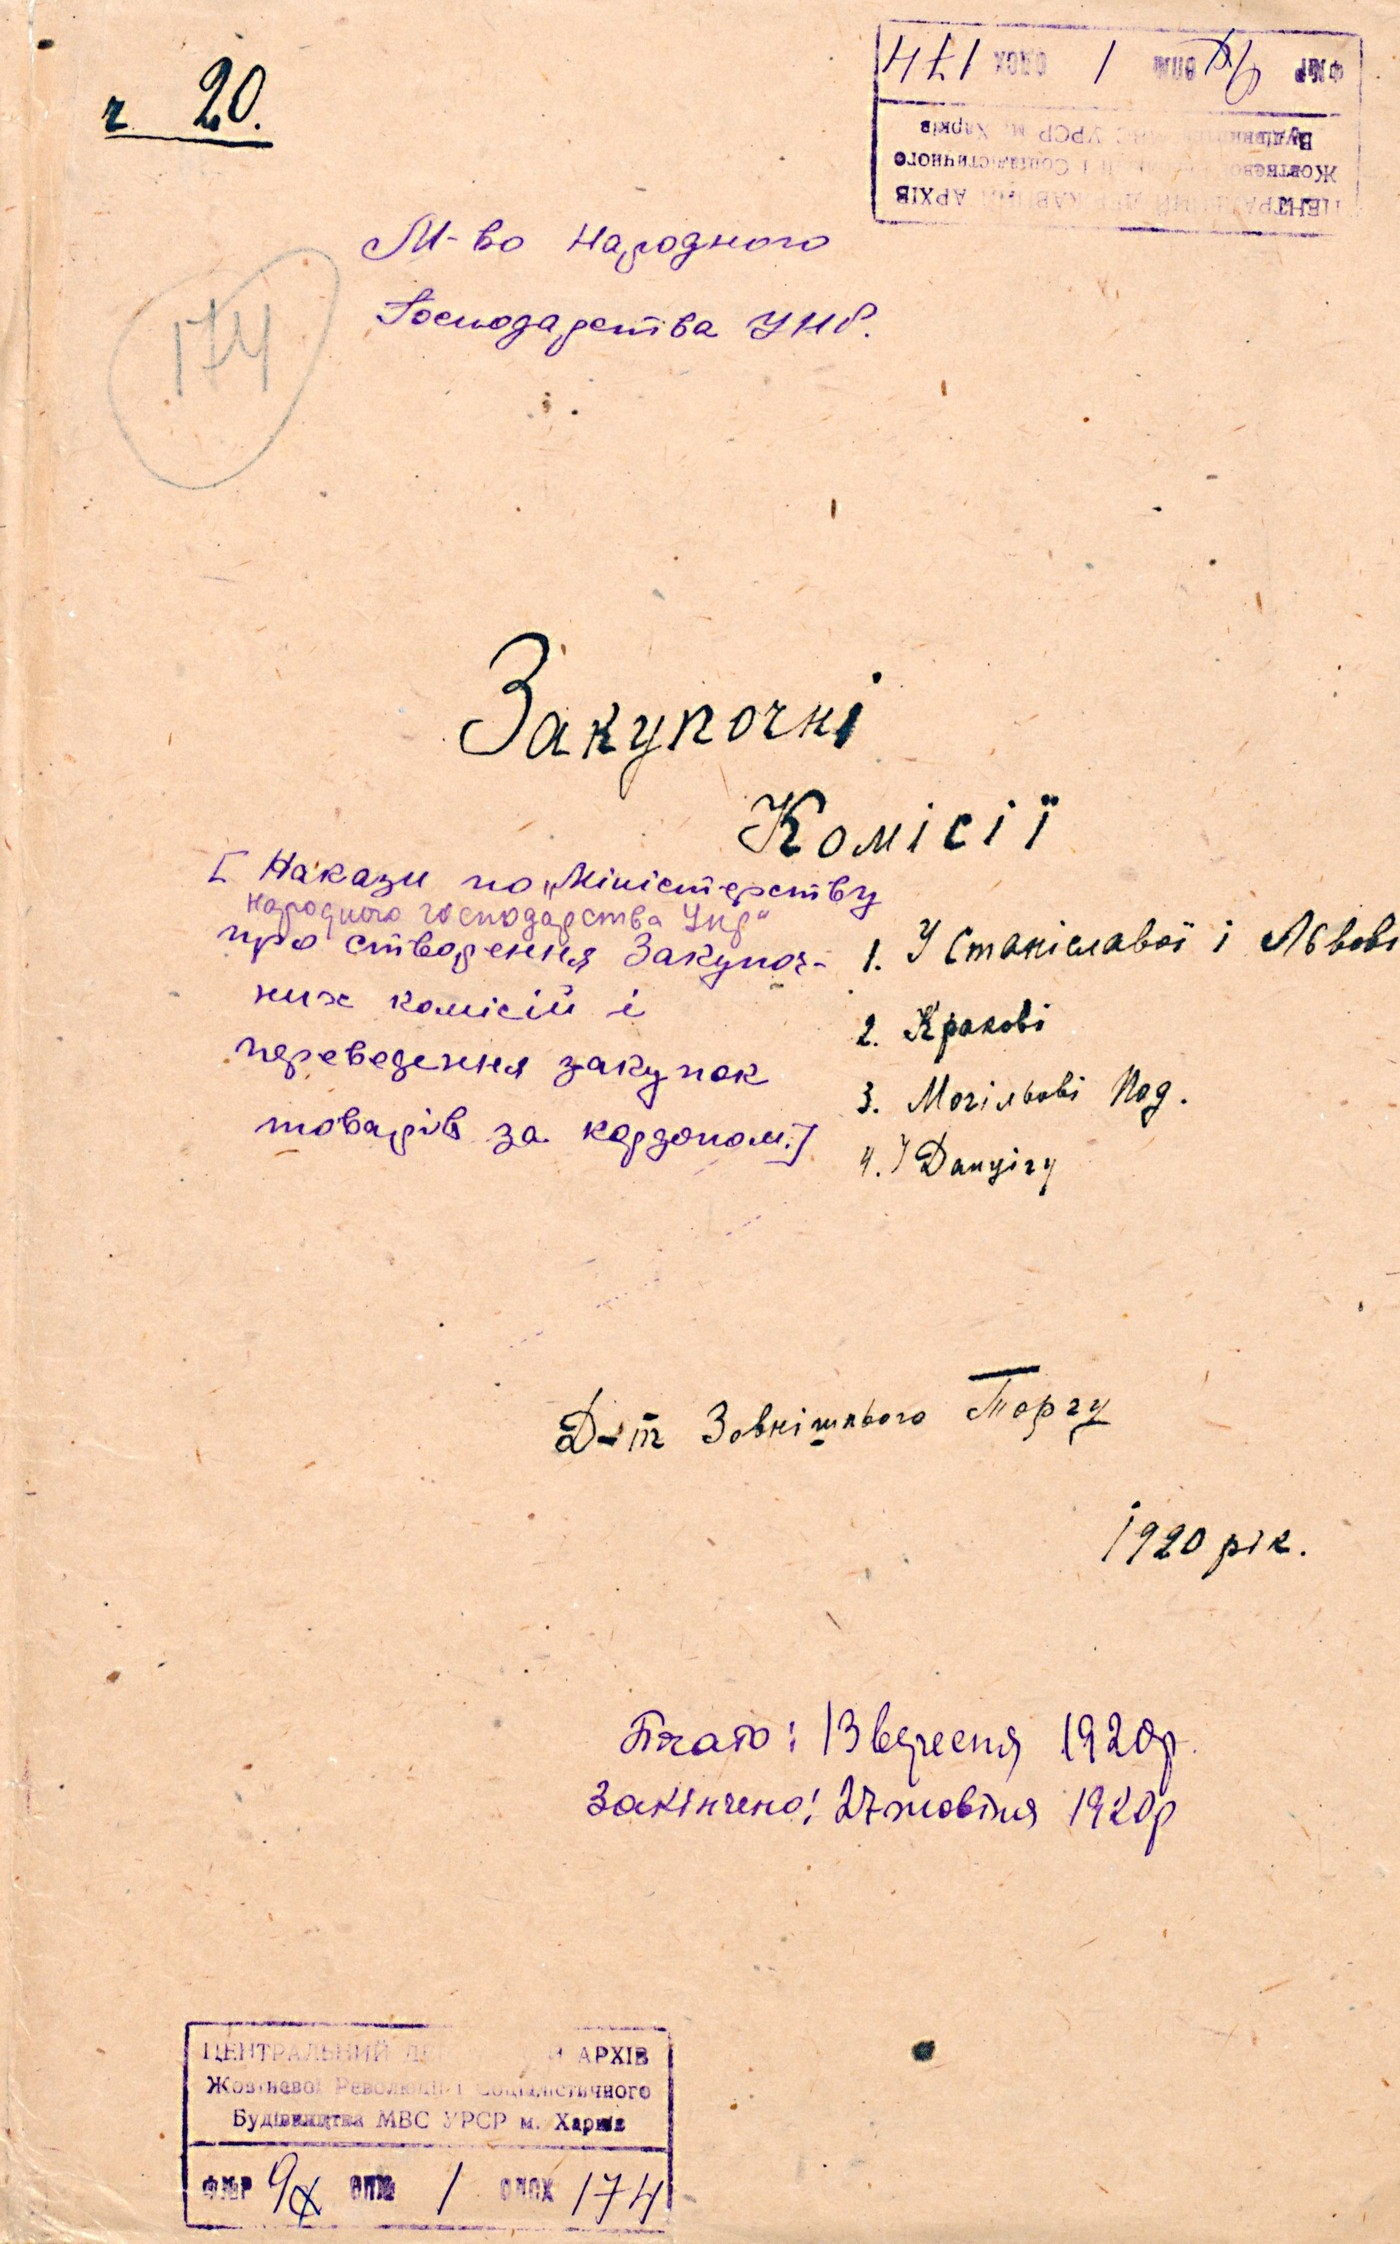 ч 20.
ФМР ОПМ 1 ОДОХ 174
ЦЕНТРАЛЬНИЙ ДЕРЖАВНИЙ АРХІВ
Жовтневої Революції і Соціалістичного
Будівництва МВС УРСР м. Харків
М-во Народного
Господарства УНР.
174
Закупочні
Комісії
[ Накази по „Міністерству
народного господарства Унр"
про створення Закупоч-
них комісій і
переведення закупок
товарів за кордоном.]
1. У Станіславові і Львові
2. Кракові
3. Могільові Под.
4. У Данцігу
Д-т Зовнішнього Торгу
1920 рік.
Почато: 13 вересня 1920р.
Закінчено: 27 жовтня 1920р
ЦЕНТРАЛЬНИЙ ДЕРЖАВНИЙ АРХІВ
Жовтневої Революції і Соціалістичного
Будівництва МВС УРСР м. Харків
ФМР ОПМ 1 ОДОХ 174